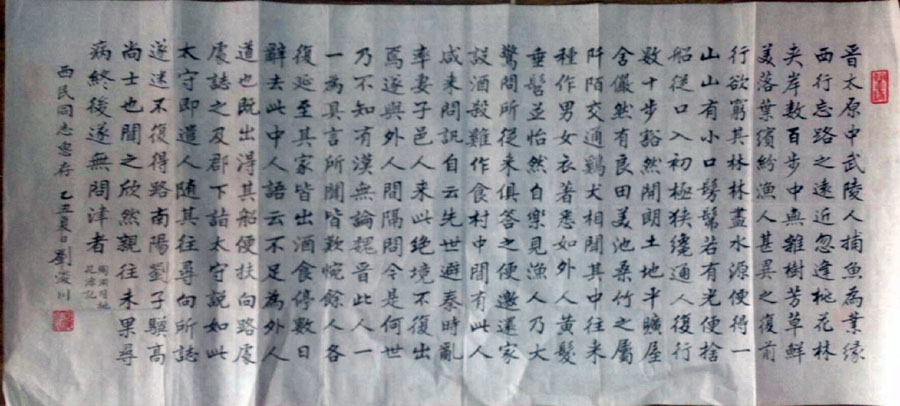 晋太原中武陵人捕魚為業緣
西行忘路之遠近忽逢桃花林
夹岸数百步中無雜樹芳草鮮
美落葉缤紛漁人甚異之復前
行欲窮其林林盡水源便得一
山山有小口髣髴若有光便捨
船従口入初極狹纔通人復行
数十步豁然開朗土地平曠屋
舍儼然有良田美池桑竹之屬
阡陌交通鷄犬相聞其中往来
種作男女衣著悉如外人黄髮
垂髫並怡然自樂見漁人乃大
驚問所従来俱答之便邀還家
設酒殺雞作食村中聞有此人
咸来問訊自云先世避秦時亂
率妻子邑人来此绝境不復出
焉遂與外人間隔問今是何世
乃不知有漢無論魏晋此人一
一為具言所聞皆歎惋餘人各
復延至其家皆出酒食停數日
辭去此中人語云不足為外人
道也既出得其船便扶向路處
處誌之及郡下詣太守説如此
太守即遣人随其往尋向所誌
遂迷不復得路南陽劉子驥高
尚士也聞之欣然親往未果尋
病終後遂無問津者
陶渊明桃
花源记
西民同志惠存 乙丑夏日劉川